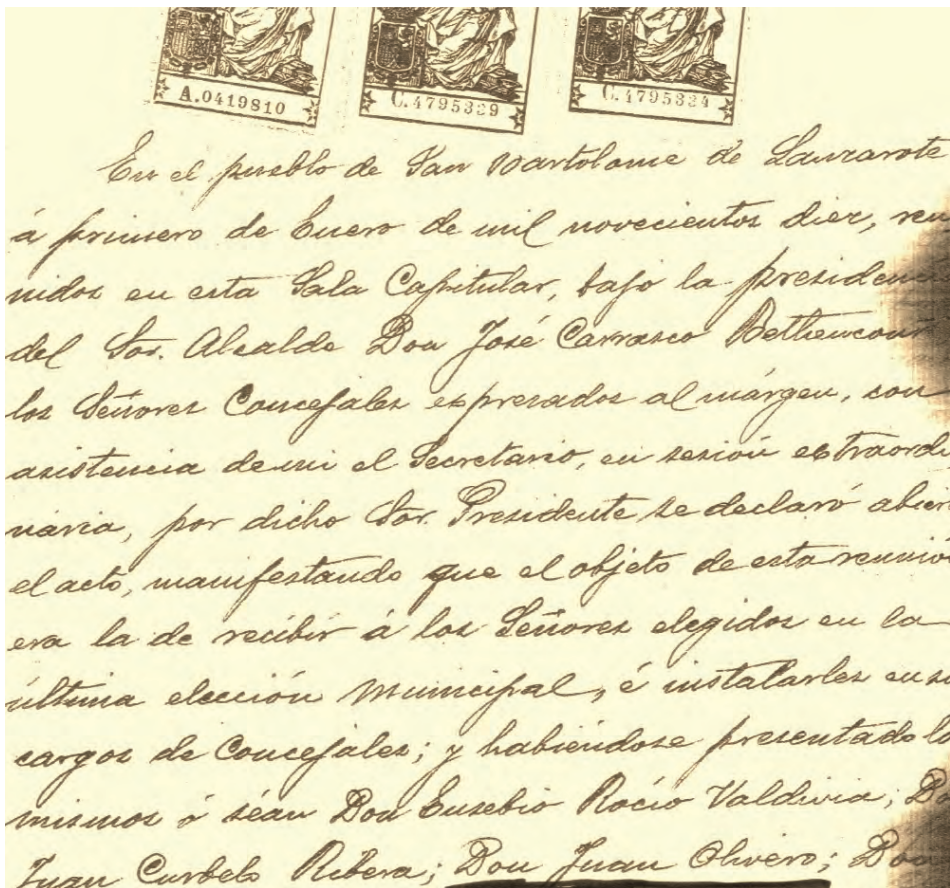 A.0419810 C.4795329 C.4795334
En el pueblo de San Bartolome de Lanzarote
á primero de Enero de mil novecientos diez, reu
nidos en esta Sala Capitular, bajo la presiden
del Sor. Alcalde Don José Carrasco Bethencourt
los Señores Concejales expresados al márgen, con
asistencia de mi el Secretario, en sesión extraordi
naria, por dicho Sor. Presidente se declaró abier
el acto, manifestando que el objeto de esta reunión
era la de recibir á los Señores elegidos en la
última elección Municipal, é instalarles en su
cargos de Concejales; y habiéndose presentado lo
mismos ó séan Don Eusebio Rocío Valdivia; D
Juan Curbelo Ribera; Don Juan Olivero; Don